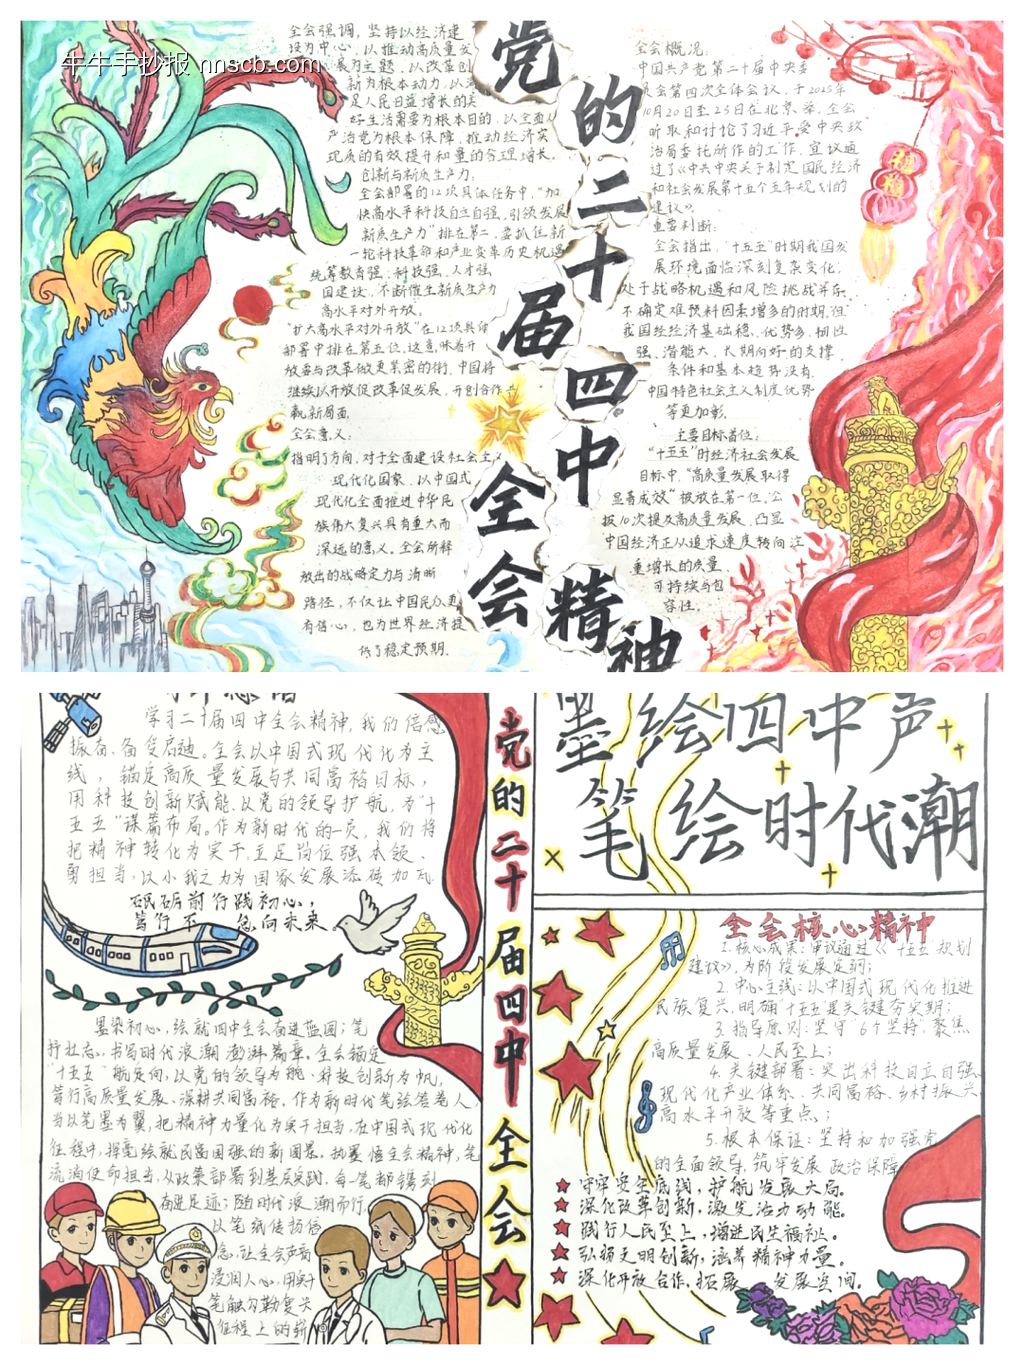 牛牛手抄报 nnscb.com
党的二十届四中全会精神
全会强调，坚持以经济建
设为中心，以推动高质量发
展为主题，以改革创
新为根本动力，以满
足人民日益增长的美
好生活需要为根本目的，以全面从
严治党为根本保障，推动经济实
现质的有效提升和量的合理增长，
创新与新质生产力，
全会部署的12项具体任务中，“加
快高水平科技自立自强，引领发展
新质生产力”排在第二，要抓住新
一轮科技革命和产业变革历史机遇
统筹教育强、科技强、人才强
国建设，不断催生新质生产力
高水平对外开放。
“扩大高水平对外开放”在12项具体
部署中排在第五位，这意味着开
放要与改革做更紧密的衔，中国将
继续以开放促改革促发展，开创合作共
赢新局面。
全会意义：
指明了方向，对于全面建设社会主义
现代化国家，以中国式
现代化全面推进中华民
族伟大复兴具有重大而
深远的意义。全会所释
放出的战略定力与清晰
路径，不仅让中国民众更
有信心，也为世界经济提
供了稳定预期。
全会概况：
中国共产党第二十届中央委
员会第四次全体会议，于2025年
10月20日至23日在北京举，全会
听取和讨论了习近平受中央政
治局委托所作的工作，宣议通
过了《中共中央关于制定国民经济
和社会发展第十五个五年规划的
建议》。
重要判断：
全会指出，“十五五”时期我国发
展环境面临深刻复杂变化，
处于战略机遇和风险挑战并存、
不确定难预料因素增多的时期，但
我国经经济基础稳、优势多、韧性
强、潜能大，长期向好的支撑
条件和基本趋势没有，
中国特色社会主义制度优势
等更加彰，
主要目标首位：
“十五五”时经济社会发展
目标中，“高质量发展取得
显著成效”被放在第一位，公
报10次提及高质量发展，凸显
中国经济正从追求速度转向注
重增长的质量、
可持续与包
容性。
学习二十届四中全会精神，我们倍感
振奋、备受启迪。全会以中国式现代化为主
线，锚定高质量发展与共同富裕目标，
用科技创新赋能、以党的领导护航，为“十
五五”谋篇布局。作为新时代的一员，我们将
把精神转化为实干，立足岗位强本领、
勇担当，以小我之力为国家发展添砖加瓦
砥砺前行践初心，
笃行不 怠向未来。
墨染初心，绘就四中全会奋进蓝图；笔
抒壮志，书写时代浪潮澎湃篇章。全会锚定
“十五五”航定向，以党的领导为舵、科技创新为帆，
笃行高质量发展、深耕共同富裕。作为新时代笔绘答卷人，
当以笔墨为翼，把精神力量化为实干担当，在中国式现代化
征程中，挥毫绘就民富国强的新图景。执要悟全会精神，笔
流淌使命担当，从政策部署到基层实践，每一笔都镌刻
奋进足迹；随时代浪潮而行，
以笔砥传扬信
念，让全会声音
浸润人心，用实干
笔触勾勒复兴
征程上的崭
党的二十届四中全会
墨绘四中声
笔绘时代潮
全会核心精神
1. 核心成果：审议通过《十五五规划
建议》，为阶段发展定纲；
2. 中心主线：以中国式现代化推进
民族复兴，明确十五五是关键夯实期；
3. 指导原则：坚守“6个坚持”，聚焦
高质量发展、人民至上；
4. 关键部署：突出科技自立自强、
现代化产业体系、共同富裕、乡村振兴、
高水平开放等重点；
5. 根本保证：坚持和加强党
的全面领导，筑牢发展政治保障
守牢安全底线，护航发展大局。
深化改革创新，激发活力动能。
践行人民至上，增进民生福祉。
弘扬文明创新，涵养精神力量。
深化开放合作，拓展 发展空间。